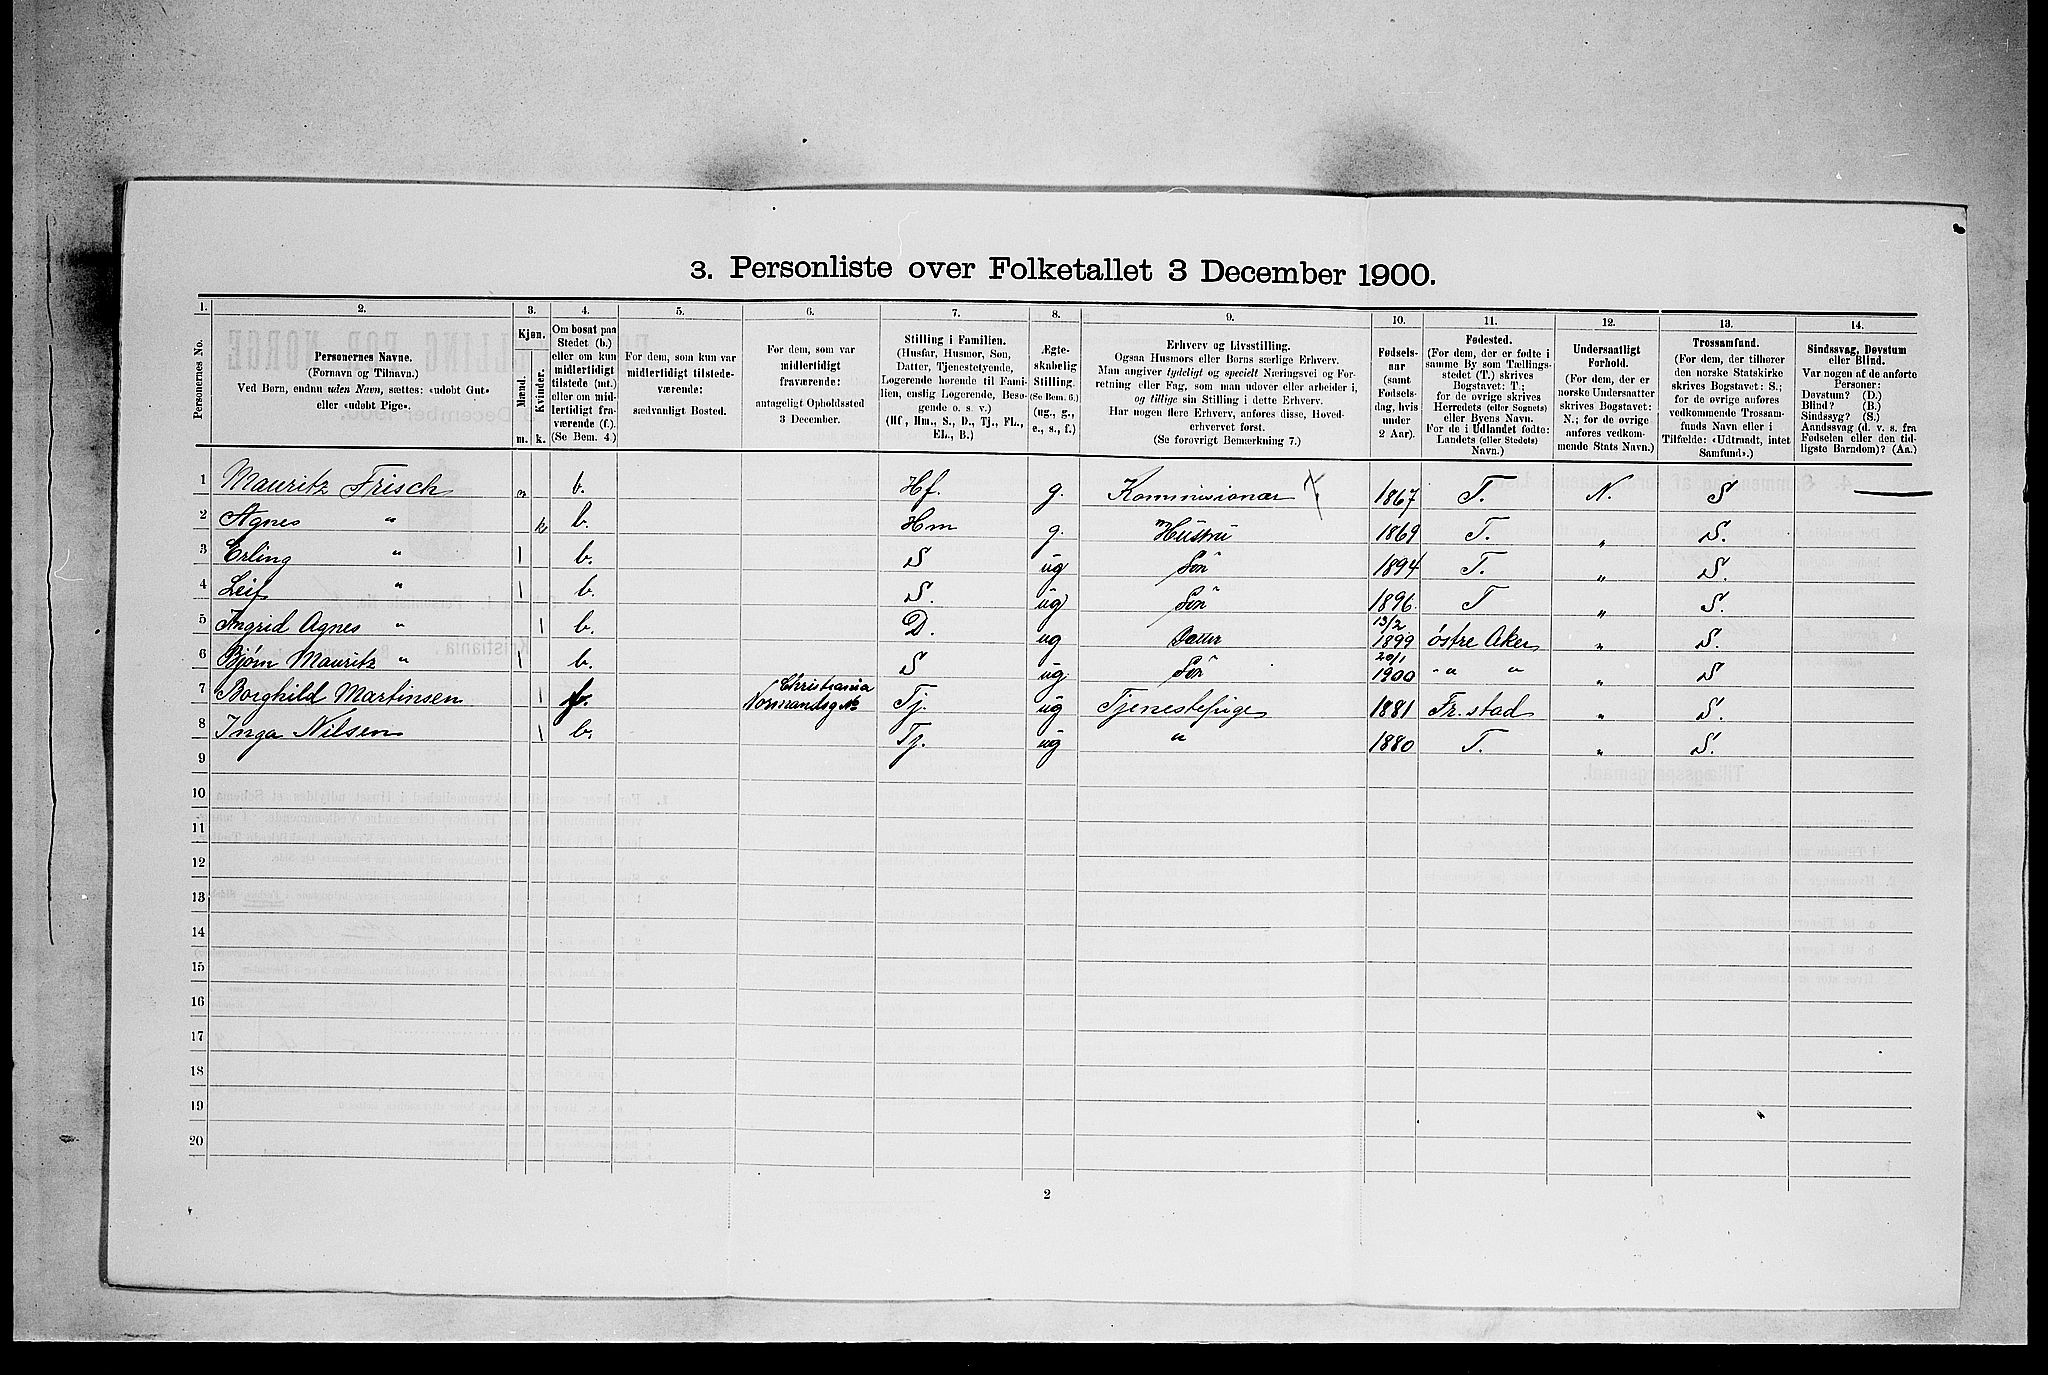 3. Personliste over Folketallet 3 December 1900.
1. 2. 3. 4. 5. 6. 7. 8. 9. 10. 11. 12. 13. 14.
Personernes No.
Personernes Navne.
(Fornavn og Tilnavn.)
Ved Børn, endnu uden Navn, sættes: «udøbt Gut»
eller «udøbt Pige».
Kjøn.
Mænd.
Kvinder.
m. k.
Om bosat paa
Stedet (b.)
eller om kun
midlertidigt
tilstede (mt.)
eller om mid-
lertidigt fra-
værende (f.).
(Se Bem. 4.)
For dem, som kun var
midlertidigt tilstede-
værende:
sædvanligt Bosted.
For dem, som var
midlertidigt
fraværende:
antageligt Opholdssted
3 December.
Stilling i Familien.
(Husfar, Husmor, Søn,
Datter, Tjenestetyende,
Logerende hørende til Fami-
lien, enslig Logerende, Besø-
gende o. s. v.)
(Hf, Hm., S., D., Tj., FL.,
EL., B.)
Ægte-
skabelig
Stilling.
(Se Bem. 6.)
(ug., g.,
e., s., f.)
Erhverv og Livsstilling.
Ogsaa Husmors eller Børns særlige Erhverv.
Man angiver tydeligt og specielt Næringsvei og For-
retning eller Fag, som man udøver eller arbeider i,
og tillige sin Stilling i dette Erhverv.
Har nogen flere Erhverv, anføres disse, Hoved-
erhvervet først.
(Se forøvrigt Bemerkning 7.)
Fødsels-
aar
(samt
Fødsels-
dag, hvis
under
2 Aar).
Fødested.
(For dem, der er fødte i
samme By som Tællings-
stedet (T.) skrives
Bogstavet: T.;
for de øvrige skrives
Herredets (eller Sognets)
eller Byens Navn.
For de i Udlandet fødte:
Landets (eller Stedets)
Navn.)
Undersaatligt
Forhold.
(For dem, der er
norske Undersaatter
skrives Bogstavet:
N.; for de øvrige
anføres vedkom-
mende Stats Navn.)
Trossamfund.
(For dem, der tilhører
den norske Statskirke
skrives Bogstavet: S.;
for de øvrige anføres
vedkommende Trossam-
funds Navn eller i
Tilfælde: «Udtraadt, intet
Samfund».)
Sindssvag, Døvstum
eller Blind.
Var nogen af de anførte
Personer:
Døvstum? (D.)
Blind? (B.)
Sindssyg? (S.)
Aandssvag (d. v. s. fra
Fødselen eller den tid-
ligste Barndom)? (Aa.)
1 Mauritz Frisch b. Hf. g. Kommisionær 1867 T. N. S
2 Agnes " k b. Hm g. Hustru 1869 T. " S.
3 Erling " 1 b. S ug Søn 1894 T. " S.
4 Leif " 1 b. S. ug Søn 1896. T " S.
5 Ingrid Agnes " 1 b. D. ug Datter 13/2 1899 Østre Aker " S.
6 Bjørn Mauritz " 1 b. S ug Søn 20/1 1900 " " " S
7 Borghild Martinsen 1 Christiania Tj. ug Tjenestepige 1881 Fr.stad " S.
8 Inga Nilsen 1 b. Tj. ug " 1880 T. " S.
9
10
11
12
13
14
15
16
17
18
19
20
2